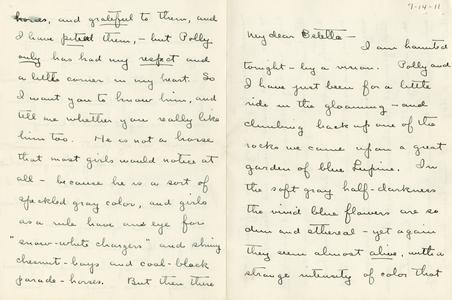 horses, and grateful to them, and
I have petted them, – but Polly
only has had my respect and
a little corner in my heart. So
I want you to know him, and
tell me whether you really like
him too. He is not a horse
that most girls would notice at
all – because he is a sort of
speckled gray color, and girls
as a rule have an eye for
"snow-white chargers" and shiny
chestnut-bays and coal-black
parade-horses. But then there
7-14-11
My dear Estella –
I am haunted
tonight – by a vision. Polly and
I have just been for a little
ride in the gloaming – and
climbing back up one of the
rocks we came upon a great
garden of blue lupine. In
the soft gray half-darkness
the vivid blue flowers are so
dim and ethereal – yet again
they seem almost alive, with a
strange intensity of color that